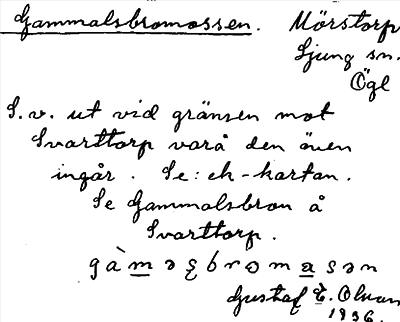 Gammalsbromossen. Mörstorp
Ljung sn.
Ögl
S.v. ut vid gränsen mot
Svarttorp varå den även
ingår. Se: ek-kartan.
Se Gammalsbron å
Svarttorp.
Gustaf E. Olvan
1936.